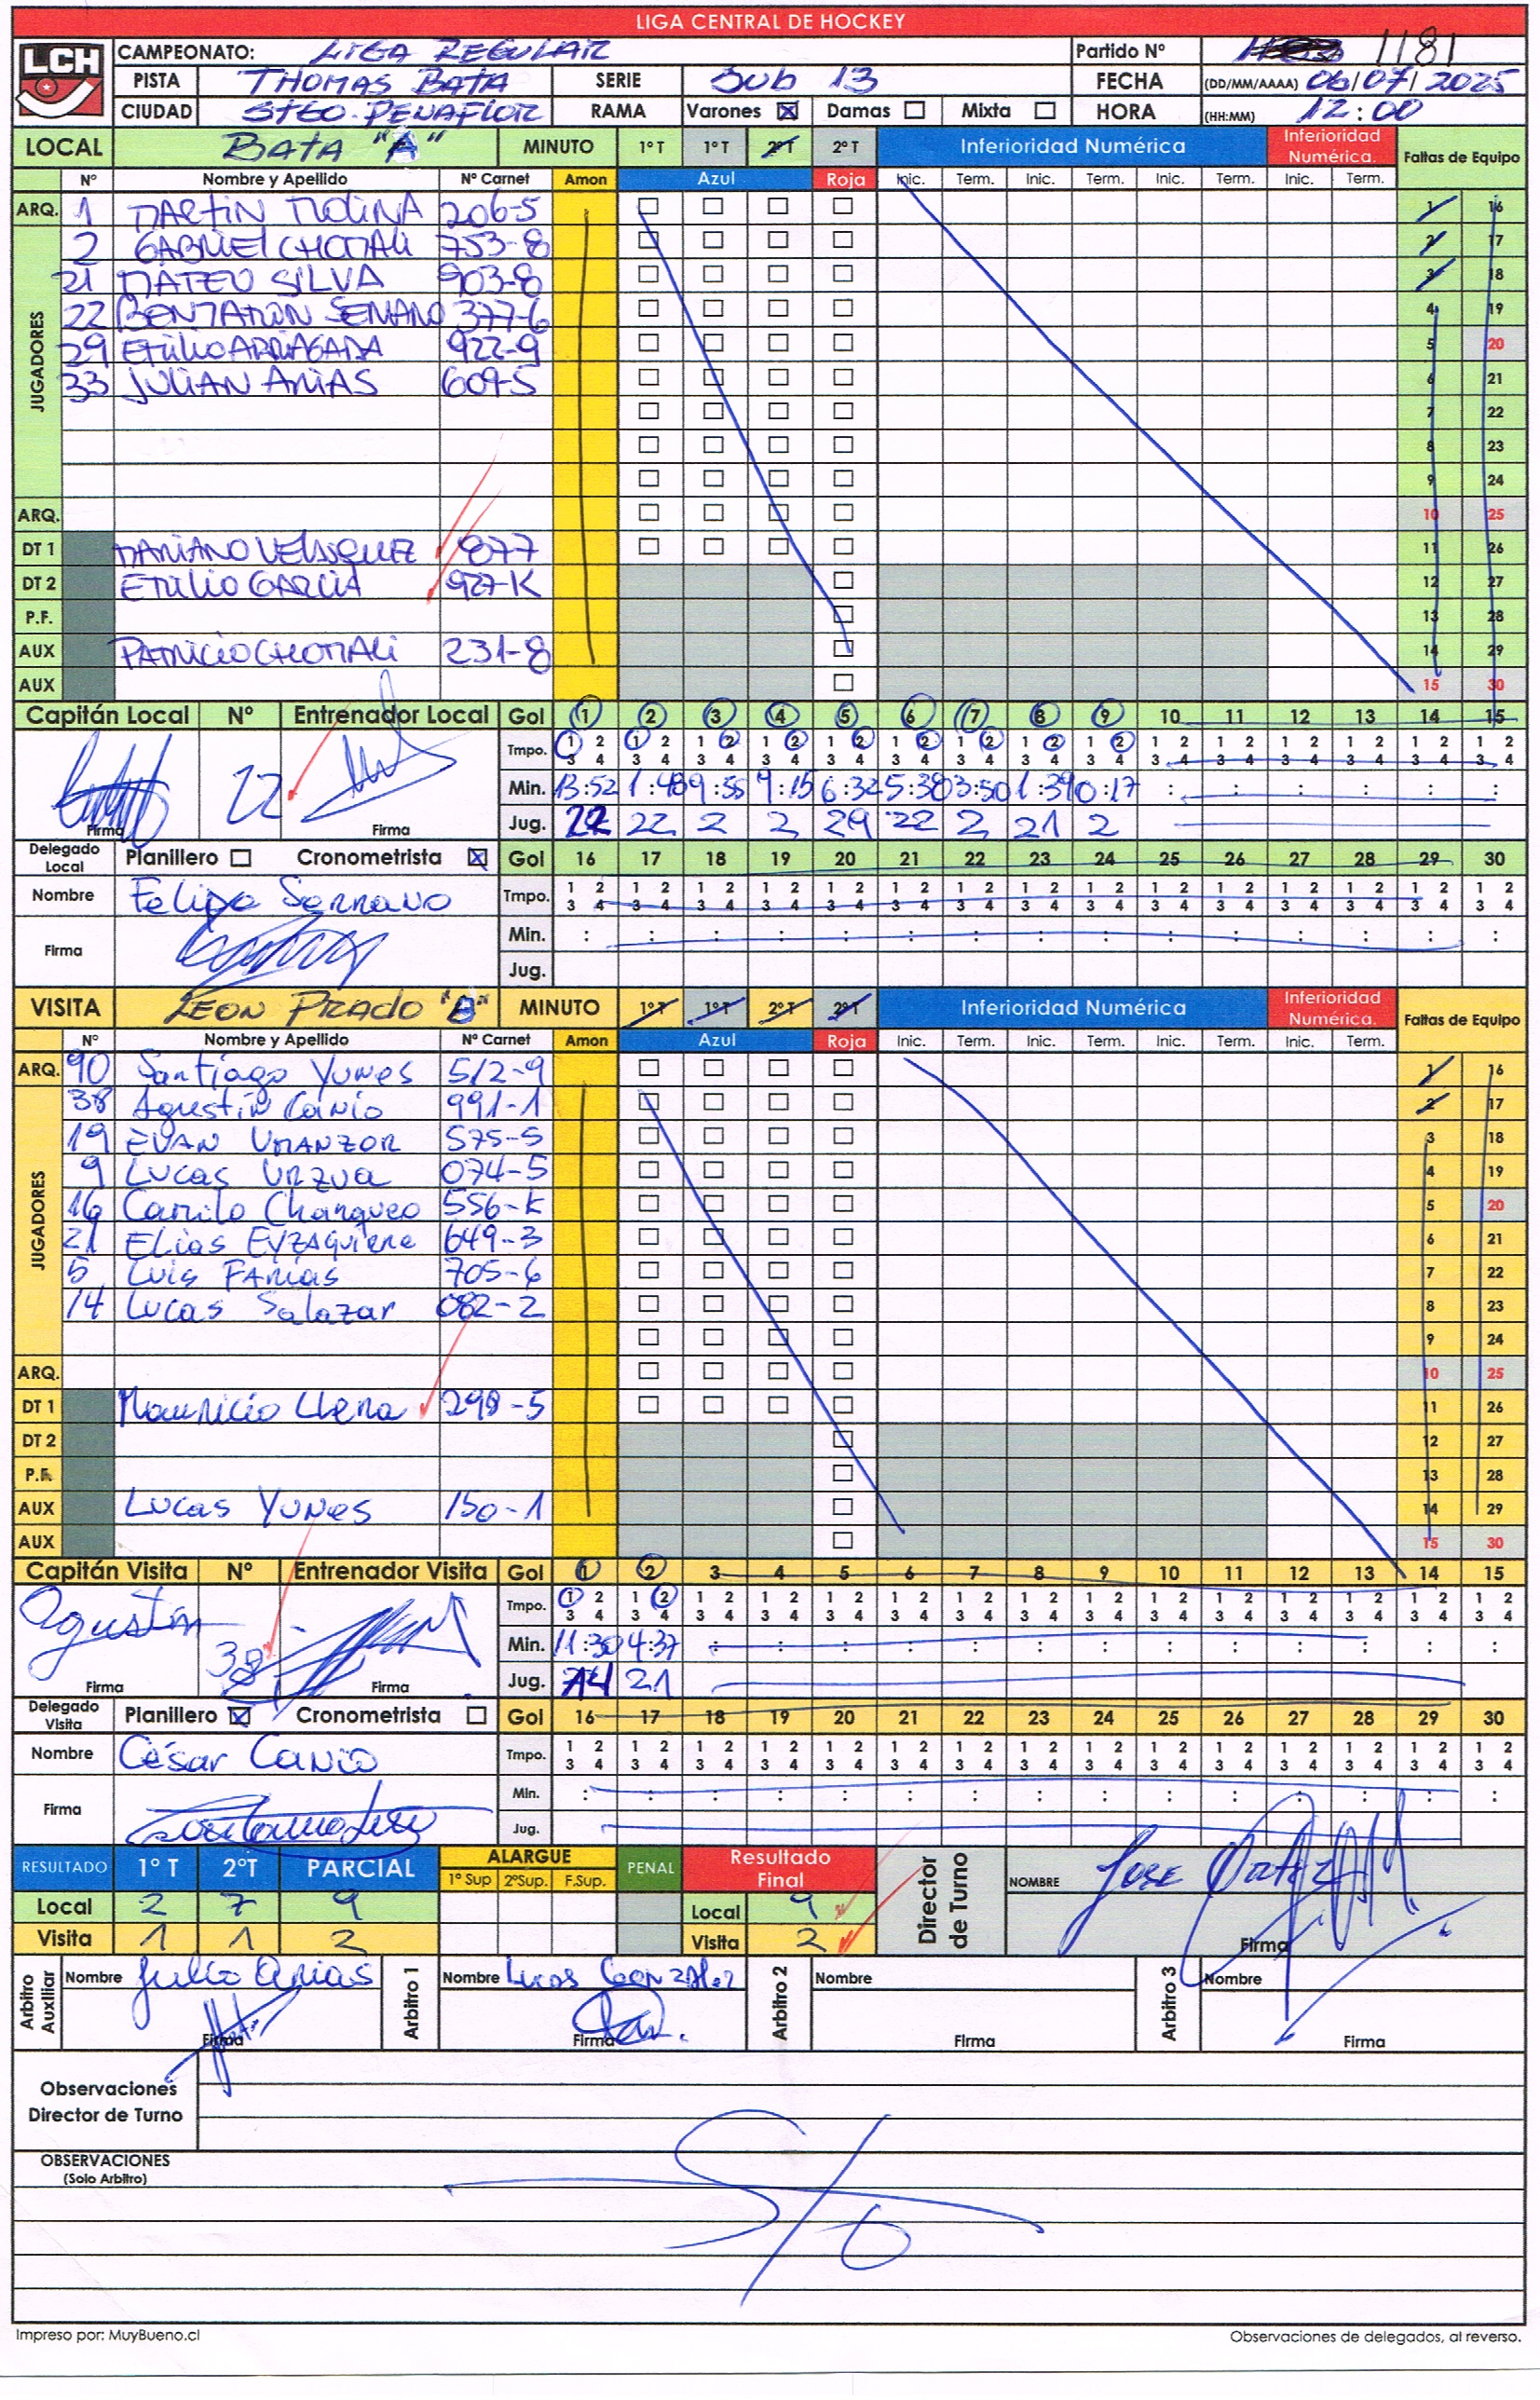 LIGA CENTRAL DE HOCKEY
LCH
CAMPEONATO: LIGA REGULAR Partido Nº 1181
PISTA THOMAS BATA SERIE SUB 13 FECHA (DD/MM/AAAA) 06/07/2025
CIUDAD STGO-PEÑAFLOR RAMA Varones Damas Mixta HORA (HH:MM) 12:00
LOCAL BATA "A" MINUTO 1º T 1º T 2º T 2º T Inferioridad Numérica Inferioridad Numérica. Faltas de Equipo
Nº Nombre y Apellido Nº Carnet Amon Azul Roja Inic. Term. Inic. Term. Inic. Term. Inic. Term.
ARQ. 1 MARTIN MOLINA 206-5 1 16
JUGADORES
2 GABRIEL CHOMALI 753-8 2 17
21 MATEO SILVA 903-8 3 18
22 BENJAMIN SERRANO 377-6 4 19
29 EMILIO ARRIAGADA 922-9 5 20
33 JULIAN ARIAS 609-5 6 21
7 22
8 23
9 24
ARQ. 10 25
DT 1 MARIANO VELASQUEZ 877 11 26
DT 2 EMILIO GARCIA 927-K 12 27
P.F. 13 28
AUX PATRICIO CHOMALI 231-8 14 29
AUX 15 30
Capitán Local Nº Entrenador Local Gol 1 2 3 4 5 6 7 8 9 10 11 12 13 14 15
Tmpo. 1 2 1 2 1 2 1 2 1 2 1 2 1 2 1 2 1 2 1 2 1 2 1 2 1 2 1 2 1 2
3 4 3 4 3 4 3 4 3 4 3 4 3 4 3 4 3 4 3 4 3 4 3 4 3 4 3 4 3 4
22 Min. 13:52 1:48 9:55 9:15 6:32 5:38 3:50 1:39 0:17 : : : : : :
Firma Firma Jug. 22 22 2 2 29 22 2 21 2
Delegado Local Planillero Cronometrista Gol 16 17 18 19 20 21 22 23 24 25 26 27 28 29 30
Nombre Felipe Serrano Tmpo. 1 2 1 2 1 2 1 2 1 2 1 2 1 2 1 2 1 2 1 2 1 2 1 2 1 2 1 2 1 2
3 4 3 4 3 4 3 4 3 4 3 4 3 4 3 4 3 4 3 4 3 4 3 4 3 4 3 4 3 4
Firma Min. : : : : : : : : : : : : : : :
Jug.
VISITA LEON PRADO "B" MINUTO 1º T 1º T 2º T 2º T Inferioridad Numérica Inferioridad Numérica. Faltas de Equipo
Nº Nombre y Apellido Nº Carnet Amon Azul Roja Inic. Term. Inic. Term. Inic. Term. Inic. Term.
ARQ. 90 Santiago Yunes 512-9 1 16
JUGADORES
38 Agustin Canio 991-1 2 17
19 EVAN UMANZOR 575-5 3 18
9 Lucas Urzua 074-5 4 19
16 Camilo Changueo 556-K 5 20
21 Elias Eyzaguirre 649-3 6 21
5 Luis Farias 705-6 7 22
14 Lucas Salazar 082-2 8 23
9 24
ARQ. 10 25
DT 1 Mauricio Llera 298-5 11 26
DT 2 12 27
P.F. 13 28
AUX Lucas Yunes 150-1 14 29
AUX 15 30
Capitán Visita Nº Entrenador Visita Gol 1 2 3 4 5 6 7 8 9 10 11 12 13 14 15
Agustin Tmpo. 1 2 1 2 1 2 1 2 1 2 1 2 1 2 1 2 1 2 1 2 1 2 1 2 1 2 1 2 1 2
3 4 3 4 3 4 3 4 3 4 3 4 3 4 3 4 3 4 3 4 3 4 3 4 3 4 3 4 3 4
38 Min. 11:30 4:37 : : : : : : : : : : : : :
Firma Firma Jug. 14 21
Delegado Visita Planillero Cronometrista Gol 16 17 18 19 20 21 22 23 24 25 26 27 28 29 30
Nombre César Canio Tmpo. 1 2 1 2 1 2 1 2 1 2 1 2 1 2 1 2 1 2 1 2 1 2 1 2 1 2 1 2 1 2
3 4 3 4 3 4 3 4 3 4 3 4 3 4 3 4 3 4 3 4 3 4 3 4 3 4 3 4 3 4
Firma Min. : : : : : : : : : : : : : : :
Jug.
RESULTADO 1º T 2ºT PARCIAL ALARGUE 1º Sup 2ºSup. F.Sup. PENAL Resultado Final Director de Turno NOMBRE JOSE ORTIZ
Local 2 7 9 Local 9
Visita 1 1 2 Visita 2 Firma
Arbitro Auxiliar Nombre Julio Arias Arbitro 1 Nombre Lucas Gonzalez Arbitro 2 Nombre Arbitro 3 Nombre
Firma Firma Firma Firma
Observaciones
Director de Turno
OBSERVACIONES
(Solo Arbitro)
S/O
Impreso por: MuyBueno.cl Observaciones de delegados, al reverso.